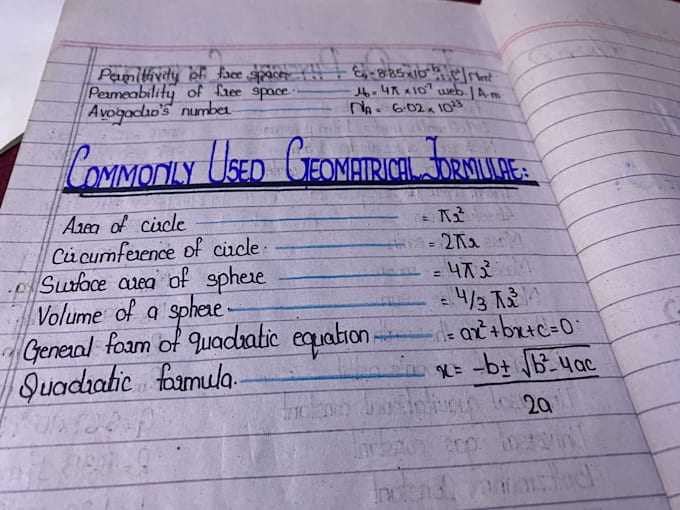 Permittivity of free space ε₀ = 8.85x10⁻¹² C²/Nm²
Permeability of free space μ₀ = 4π x10⁻⁷ web/A.m
Avogadro's number NA = 6.02 x 10²³
COMMONLY USED GEOMATRICAL FORMULAE:
Area of circle = πr²
Circumference of circle. = 2πr
Surface area of sphere = 4πr²
Volume of a sphere = 4/3 πr³
General form of quadratic equation = ax²+bx+c=0
Quadratic formula. x = -b± √b²-4ac
2a